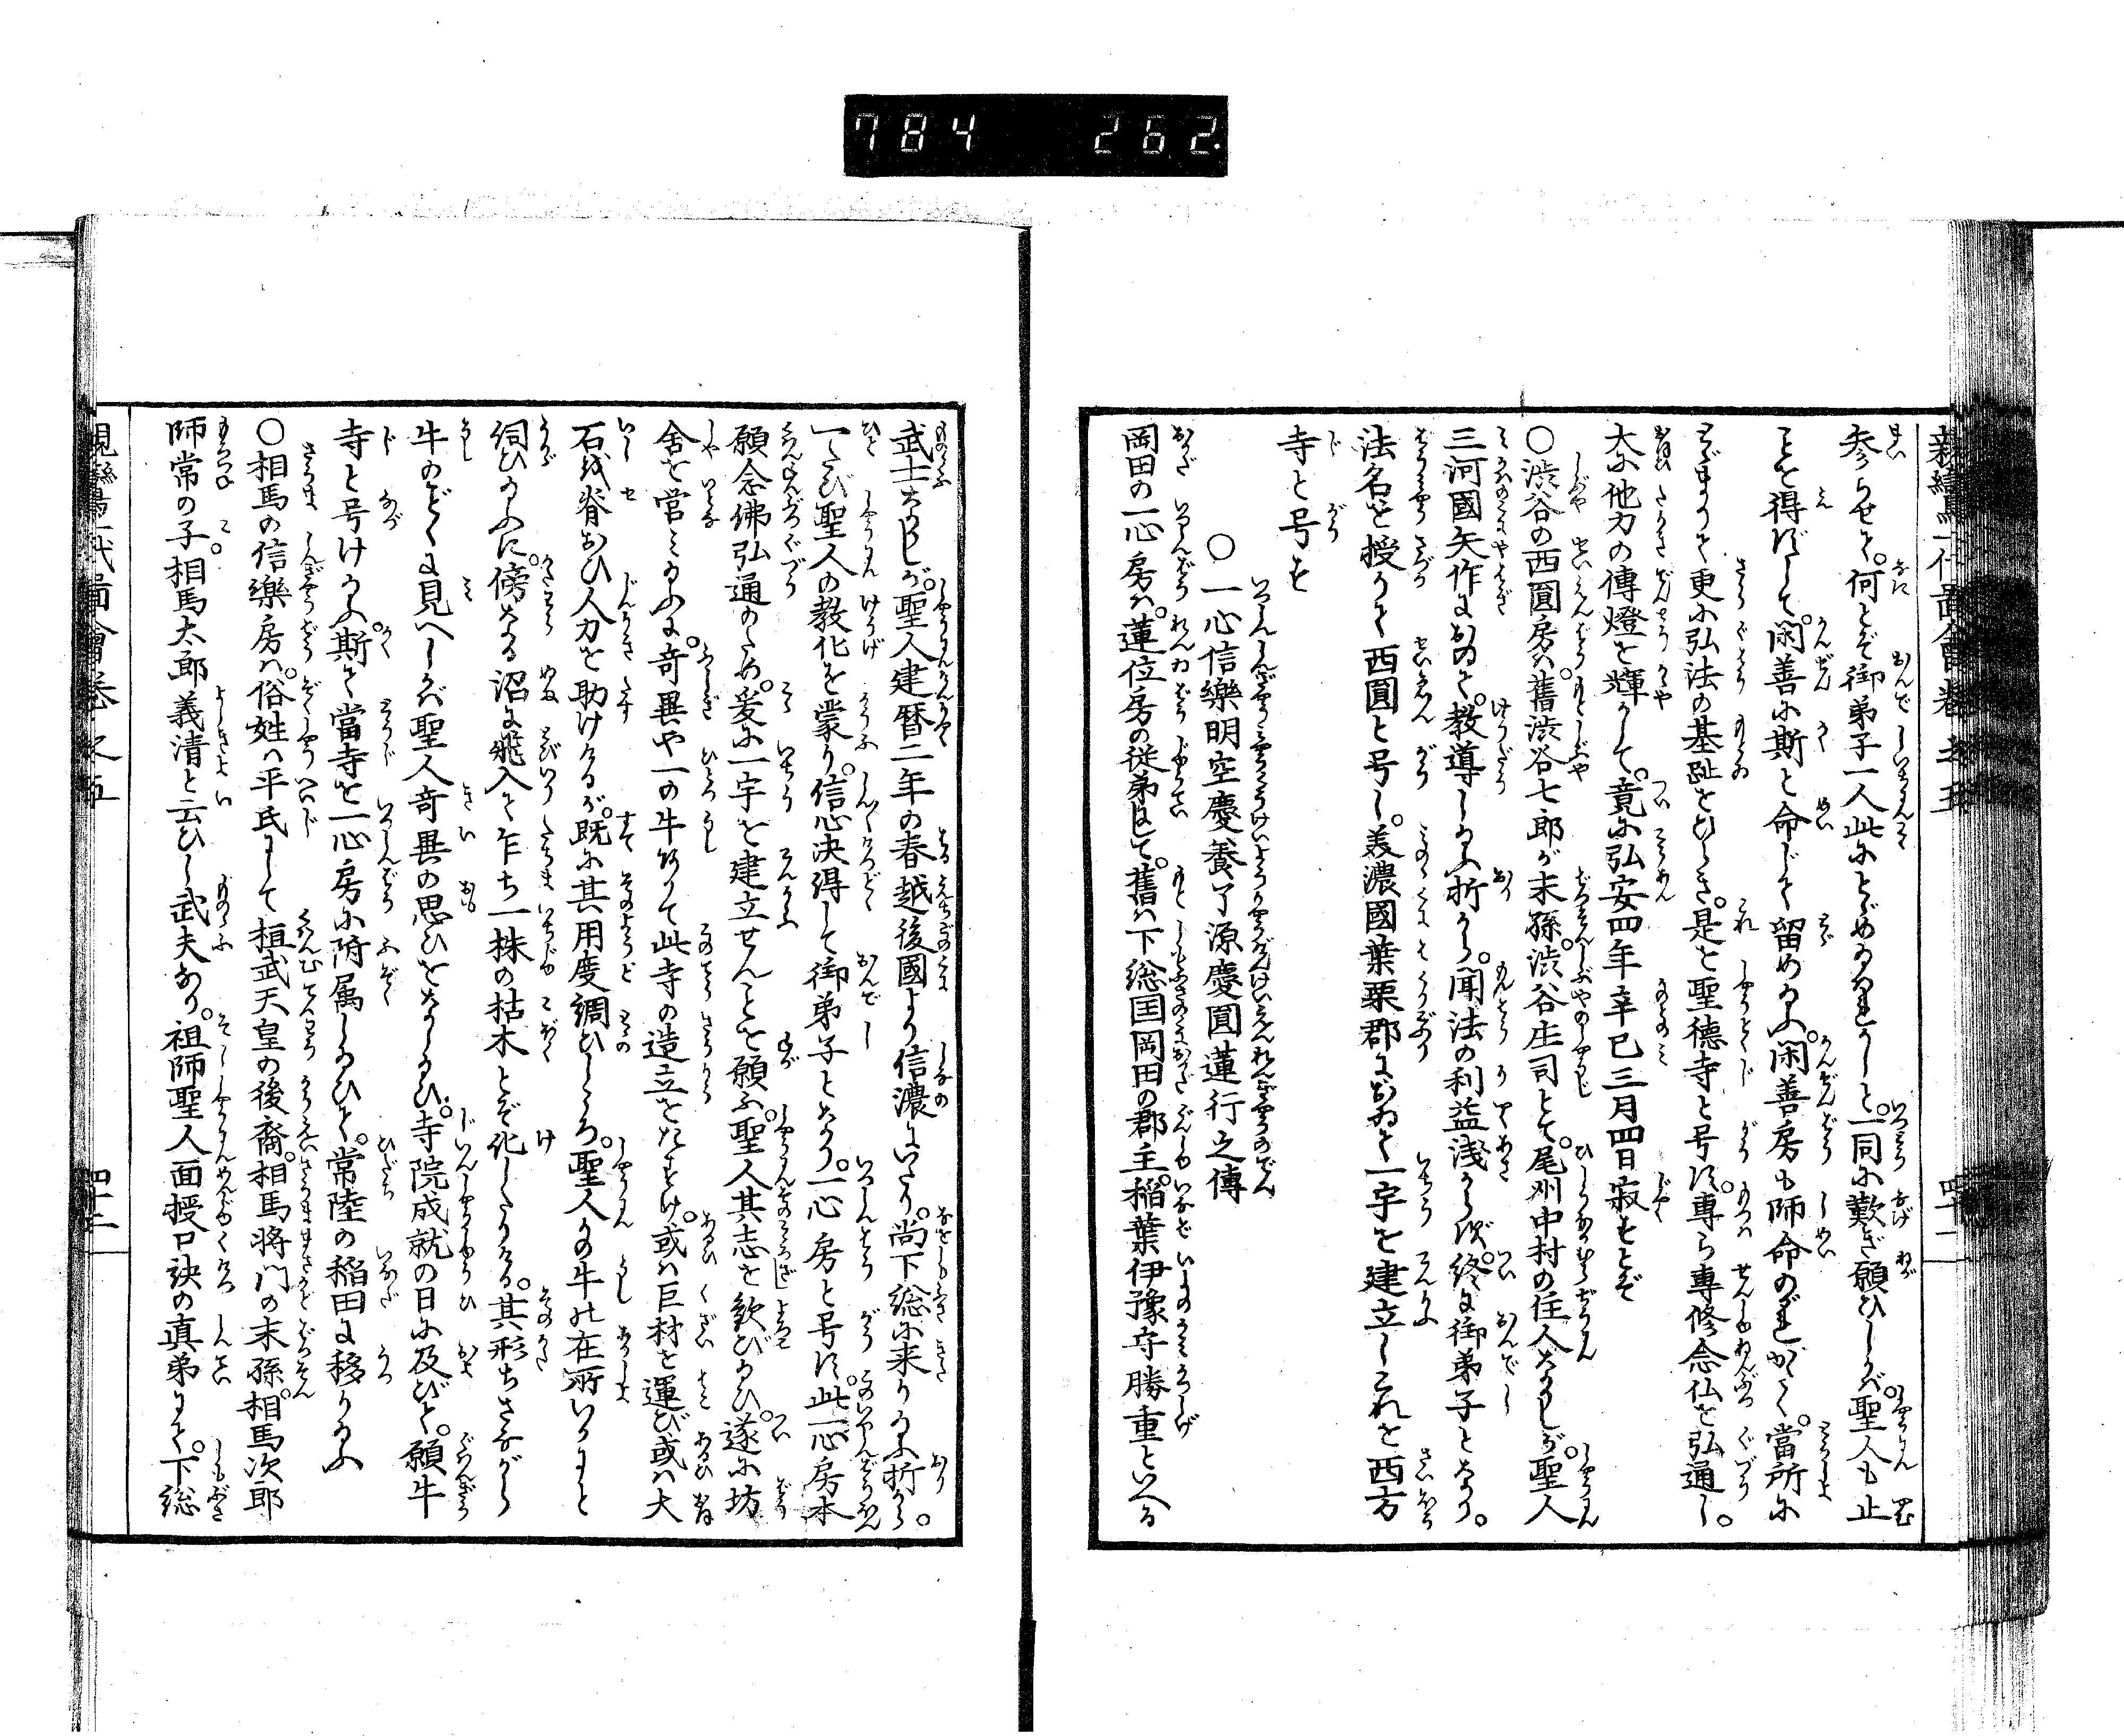 784 262.
親鸞聖人一代図會巻之五 四十二
参らせて。何とぞ御弟子一人此にとゞめ給はれかしと。一同に歎き願ひしかば。聖人も止
ことを得ずして。閑善に斯と命じて留め給ふ。閑善房も師命のがれがたく。當所に
とゞまりて更に弘法の基趾をひらき。是を聖徳寺と号す。専ら専修念仏を弘通し。
大に他力の傳燈を輝かして。竟に弘安四年辛巳三月四日寂すとぞ
〇渋谷の西圓房は。舊渋谷七郎が末孫。渋谷庄司とて。尾州中村の住人なりしが。聖人
三河國矢作におゐて。教導し給ふ折から。聞法の利益浅からず。終に御弟子となり。
法名を授りて西圓と号し。美濃國葉栗郡におゐて一宇を建立しこれを西方
寺と号す
〇一心信樂明空慶養了源慶圓蓮行之傳
岡田の一心房は。蓮位房の従弟にして。舊は下総国岡田の郡主。稲葉伊豫守勝重といへる
武士なりしが。聖人建暦二年の春越後國より信濃にいたり。尚下総に来り給ふ折から。
一たび聖人の教化を蒙り。信心决得して御弟子となり。一心房と号す。此一心房本
願念佛弘通のため。爰に一宇を建立せんことを願ふ。聖人其志を歓び給ひ。遂に坊
舎を営み給ふに。奇異や一の牛ありて此寺の造立をたすけ。或は巨材を運び或は大
石を脊おひ人力を助けけるが。既に其用度調ひしころ。聖人かの牛の在所いかにと
伺ひ給ふに。傍なる沼に飛入て乍ち一株の枯木とぞ化したりける。其形ちさながら
牛のごとくに見へしかば聖人奇異の思ひをなし給ひ。寺院成就の日に及びて。願牛
寺と号け給ふ。斯て當寺を一心房に附属し給ひて。常陸の稲田に移り給ふ
〇相馬の信樂房は。俗姓は平氏にして桓武天皇の後裔。相馬将門の末孫。相馬次郎
師常の子。相馬太郎義清と云ひし武夫なり。祖師聖人面授口訣の真弟にて。下総
親鸞聖人一代図會巻之五 四十二